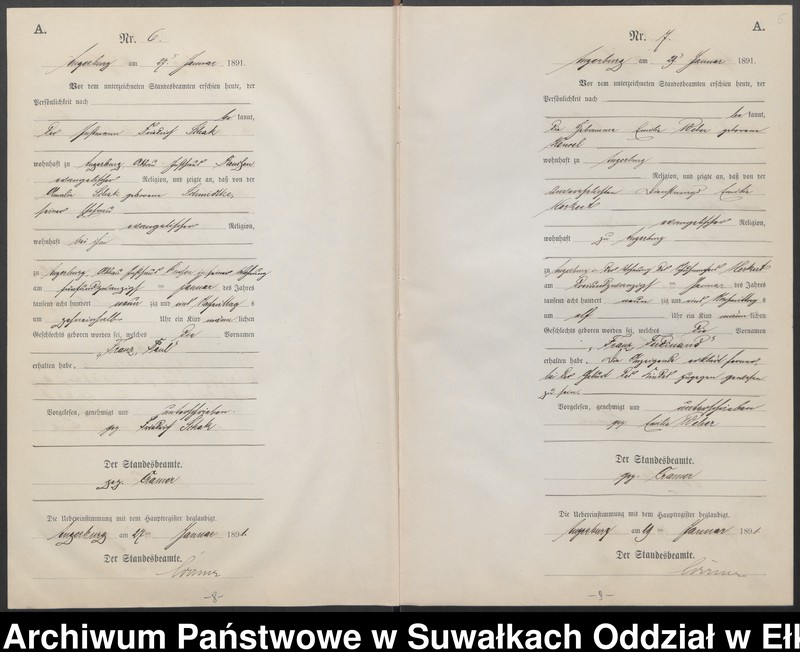 A.
Nr. 6.
Angerburg am 27 Januar 1891.
Vor dem unterzeichneten Standesbeamten erschien heute, der
Persönlichkeit nach
be kannt,
der Friedrich Schak
wohnhaft zu Angerburg
evangelischer Religion, und zeigte an, daß von der
Amalie Schak geborene
seiner Ehefrau
evangelischer Religion,
wohnhaft bei ihm
zu Angerburg seiner Wohnung
am fünfundzwanzigsten Januar des Jahres
tausend acht hundert neunzig und eins Nachmittags
um zehneinhalb Uhr ein Kind männlichen
Geschlechts geboren worden sei, welches die Vornamen
„Franz, Paul"
erhalten habe.
Vorgelesen, genehmigt und unterschrieben.
gez. Friedrich Schak
Der Standesbeamte.
gez. Cramer
Die Uebereinstimmung mit dem Hauptregister beglaubigt.
Angerburg am 27 Januar 1891.
Der Standesbeamte.
-8-
A.
6
Nr. 7.
Angerburg am 29 Januar 1891.
Vor dem unterzeichneten Standesbeamten erschien heute, der
Persönlichkeit nach
be kannt,
die Hebamme Emilie Weber geborene
Hensel
wohnhaft zu Angerburg
Religion, und zeigte an, daß von der
unverehelichten Emilie
Herkert
evangelischer Religion,
wohnhaft zu Angerburg
zu Angerburg in der Wohnung des
am Januar des Jahres
tausend acht hundert neunzig und eins Nachmittags
um elf Uhr ein Kind männlichen
Geschlechts geboren worden sei, welches die Vornamen
„Franz Ferdinand"
erhalten habe. Die Anzeigende erklärt ferner,
bei der Geburt des Kindes zugegen gewesen
zu sein.
Vorgelesen, genehmigt und unterschrieben
gez. Emilie Weber
Der Standesbeamte.
gez. Cramer
Die Uebereinstimmung mit dem Hauptregister beglaubigt.
Angerburg am 29 Januar 1891.
Der Standesbeamte.
-9-
Archiwum Państwowe w Suwałkach Oddział w Ełk